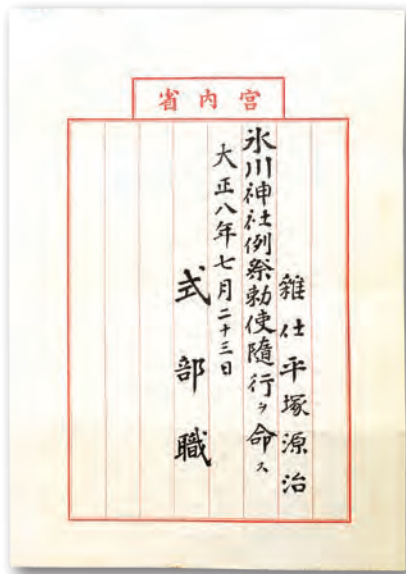 宮内省
雑仕平塚源治
氷川神社例祭勅使随行ヲ命ス
大正八年七月二十三日
式部職